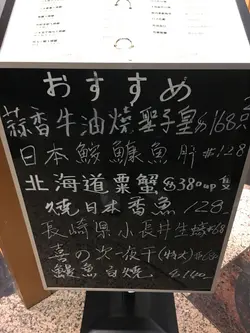 おすすめ
蒜香牛油燒聖子皇 $168
日本鮟鱇魚肝 #128
北海道粟蟹 $380 up 隻
燒日本香魚 128
長崎県小長井生蠔 #68
喜の次一夜干(特大) #
鰻魚白燒